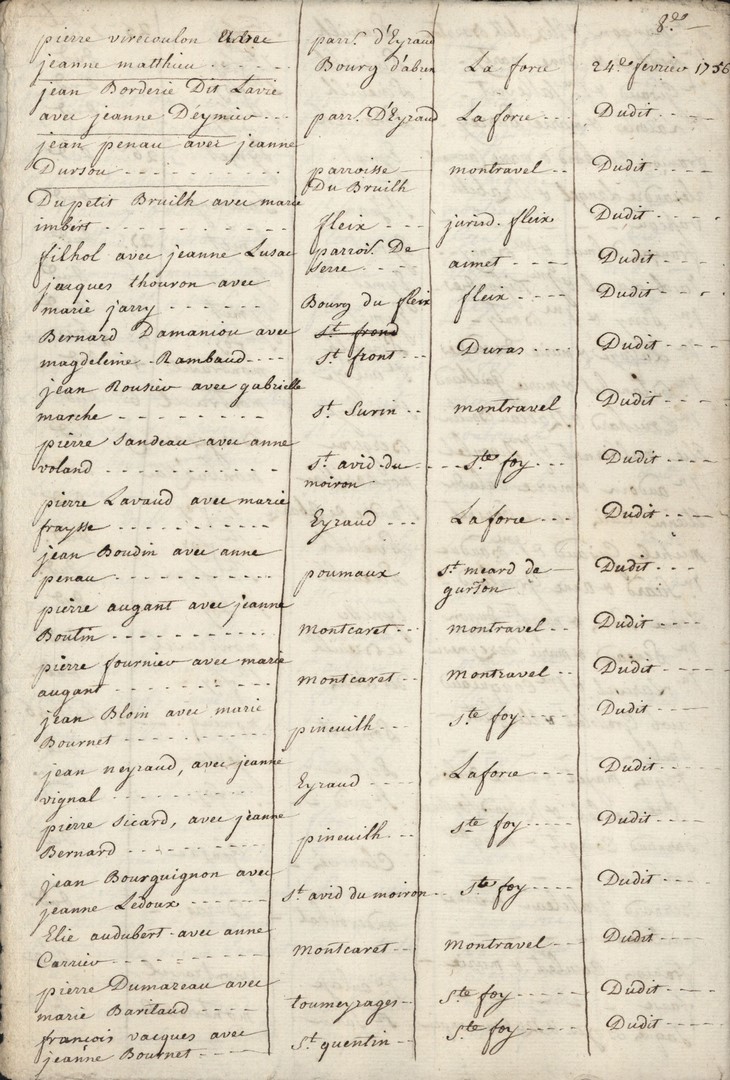 8.e
pierre vircoulon avec parr.e d'Eyraud
jeanne matthieu Bourg d'abren La force 24.e fevrier 1756
jean Borderie Dit Lavie
avec jeanne Deymiev parr.e D'Eyraud La force Dudit
jean penau avec jeanne
Dursou parroisse montravel Dudit
Du Bruilh
Dupetit Bruilh avec marie
imbert fleix jurid. fleix Dudit
filhol avec jeanne Lusac parrois. De
serre aimet Dudit
jacques thouron avec
marie jarry Bourg du fleix fleix Dudit
Bernard Damaniou avec st frond
magdeleine Rambaud st front Duras Dudit
jean Rousiev avec gabrielle
marche st Surin montravel Dudit
pierre Sandeau avec anne
voland st avid du ste foy Dudit
moiron
pierre Lavaud avec marie
fraysse Eyraud Laforce Dudit
jean Boudin avec anne
penau poumaux st meard de Dudit
gurson
pierre augant avec jeanne
Boutin montcaret montravel Dudit
pierre fourniev avec marie
augant montcaret montravel Dudit
jean Bloin avec marie
Bournet pineuilh ste foy Dudit
jean neyraud, avec jeanne
vignal Eyraud Laforce Dudit
pierre Sicard, avec jeanne
Bernard pineuilh ste foy Dudit
jean Bourguignon avec
jeanne Ledoux st avid du moiron ste foy Dudit
Elie audubert avec anne
Carriev montcaret montravel Dudit
pierre Dumazeau avec
marie Baritaud toumeyrages ste foy Dudit
françois vacques avec
jeanne Bournet st quentin ste foy Dudit